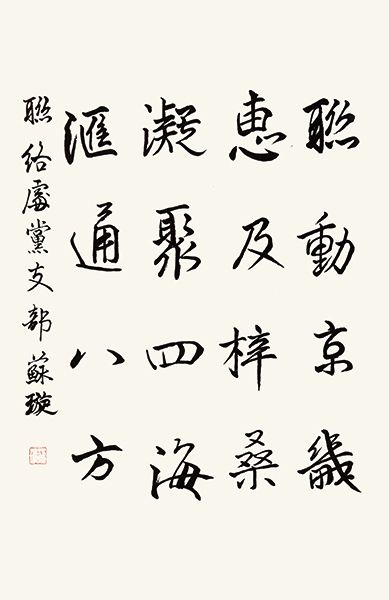 聯動京畿
惠及梓桑
凝聚四海
滙通八方
聯絡處黨支部蘇璇